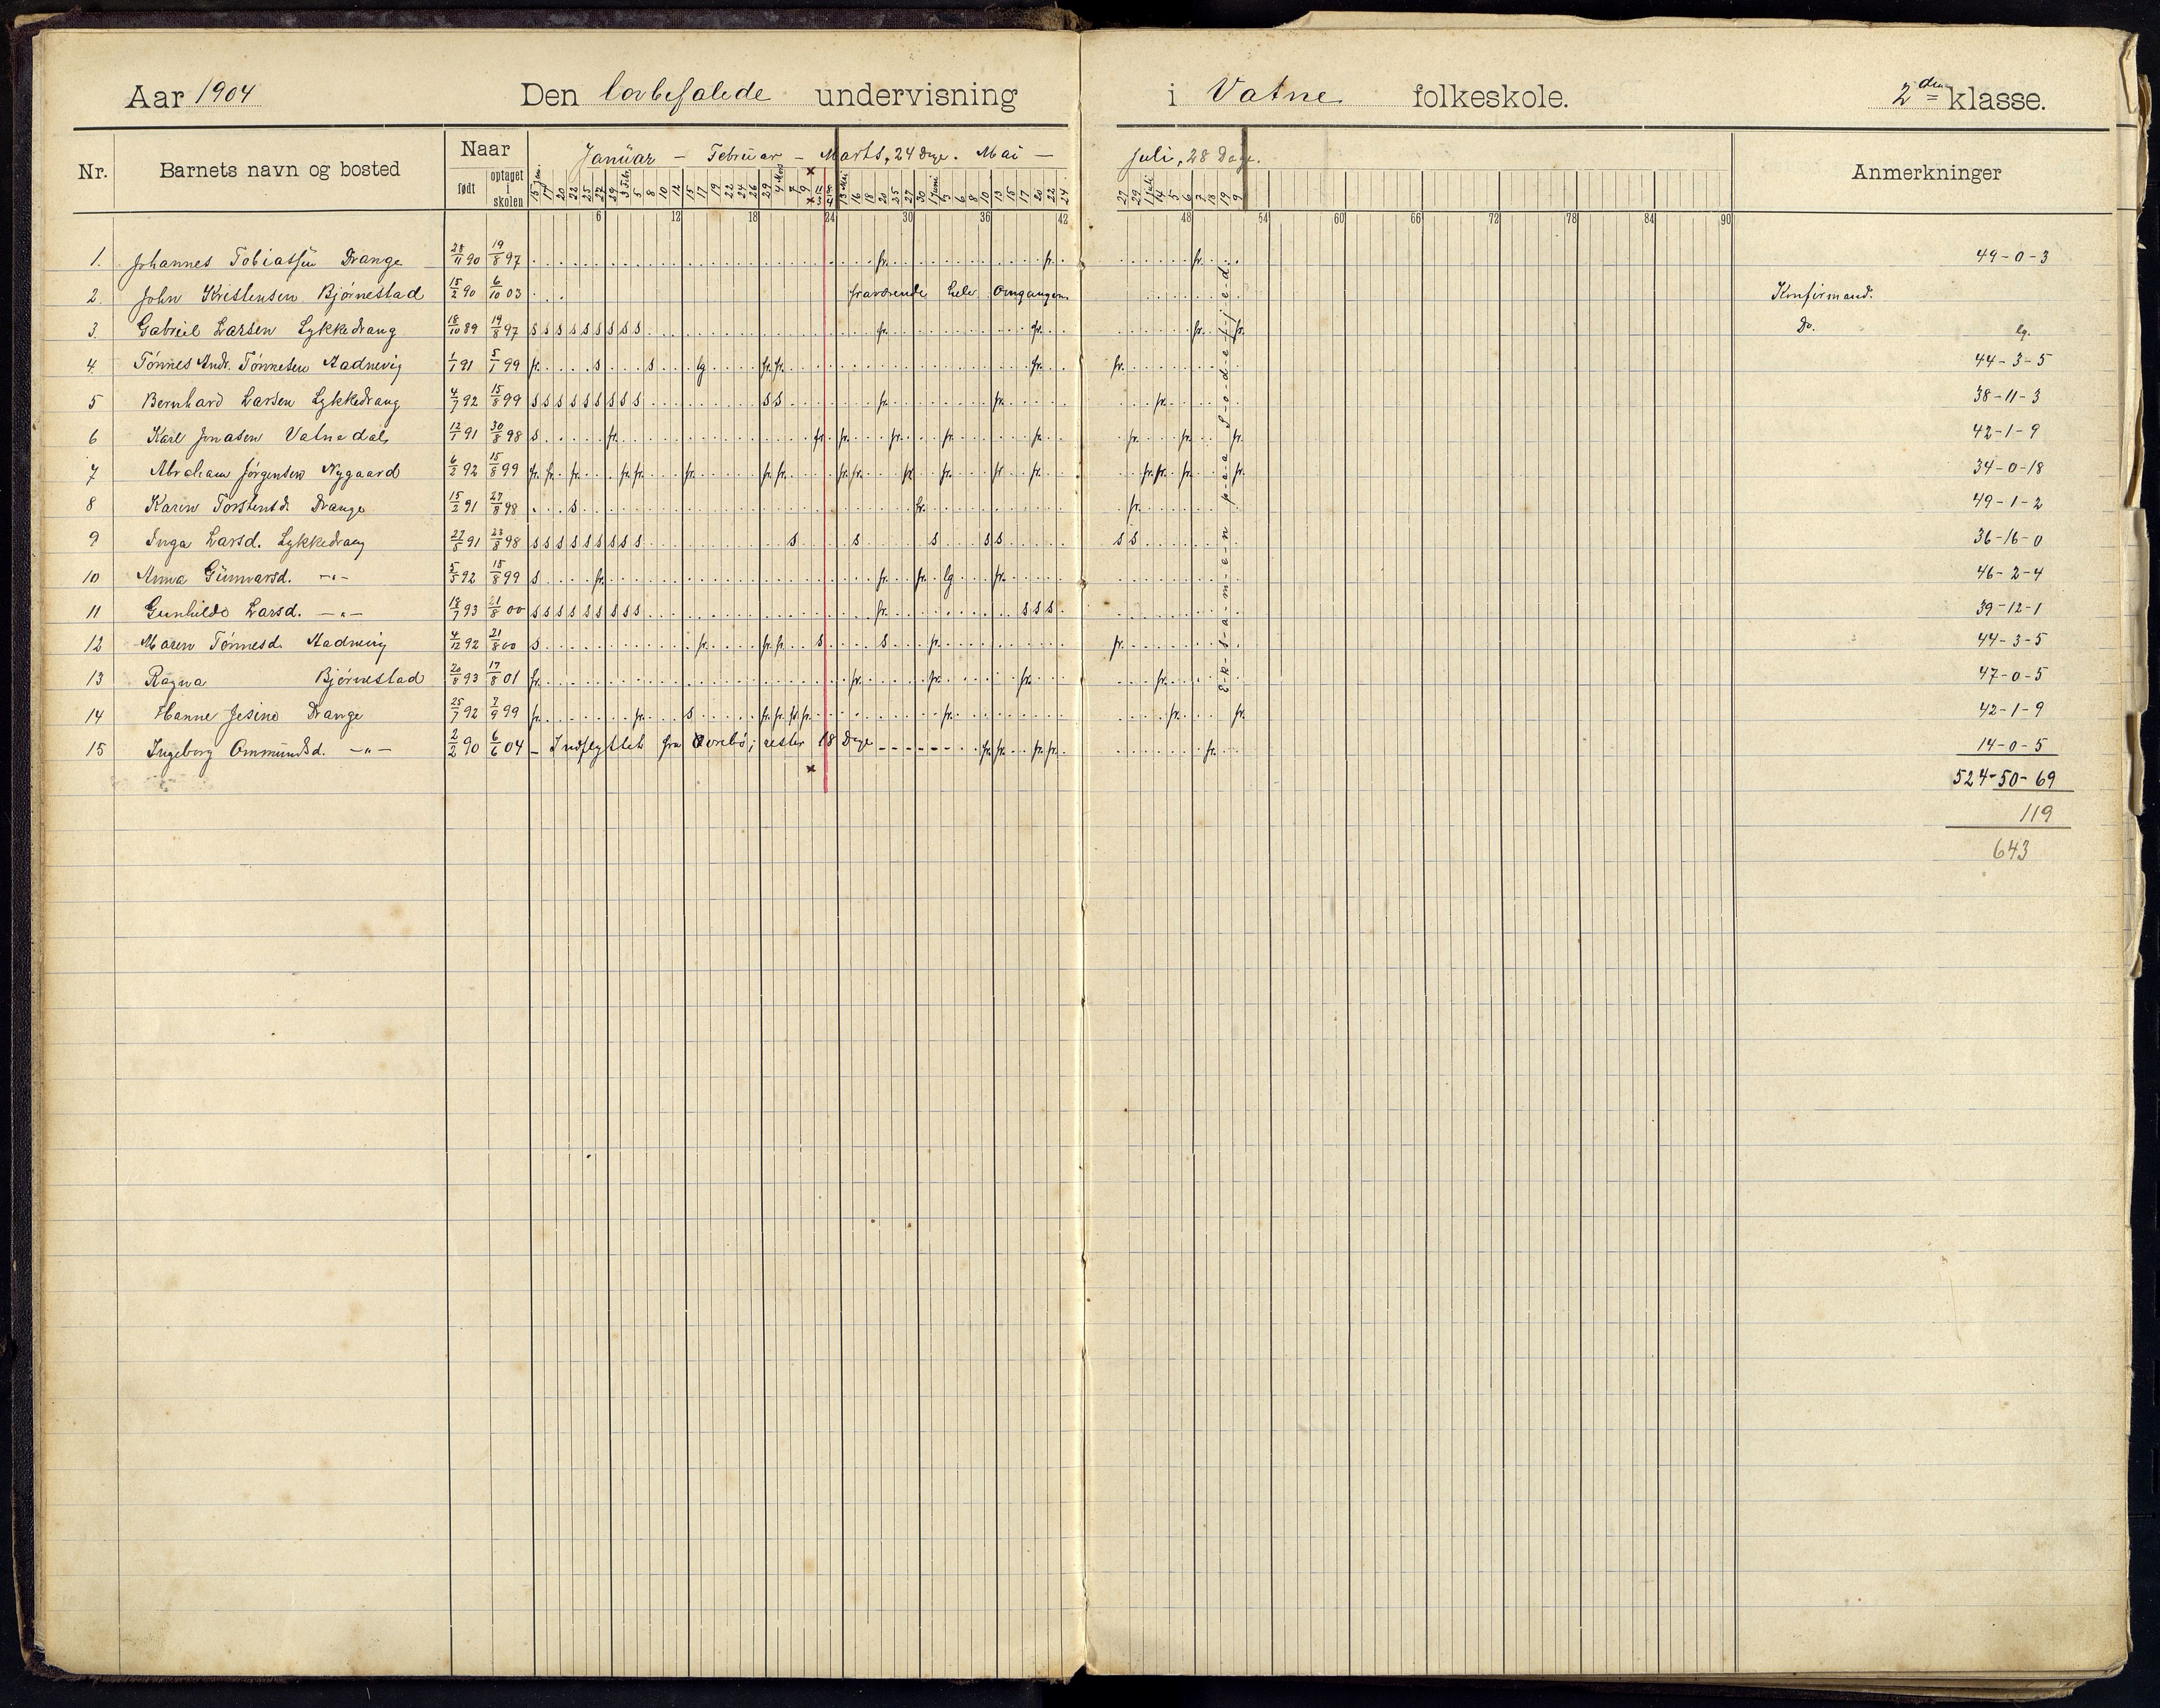 Aar 1904 Den lovbefalede undervisning i Vatne folkeskole. 2den klasse.
Nr. Barnets navn og bosted Naar født optaget i skolen Januar – Februar – Marts, 24 Dage. Mai – Juli, 28 Dage. Anmerkninger
15 Jan. 17 20 22 25 27 29 3 Feb. 5 8 10 12 15 17 19 22 24 26 29 4 Mars 7 9 13 Mai 16 18 20 25 27 30 1 Juni 3 6 8 10 13 15 17 20 22 24 27 29 1 Juli 4 5 6 7 18 19 9
6 12 18 24 30 36 42 48 54 60 66 72 78 84 90
1. Johannes Tobiassen Drange 28/11 90 19/8 97 fr. fr. fr. 49-0-3
2. John Kristensen Bjørnestad 15/2 90 6/10 03 fraværende hele Omgangen Konfirmand.
3. Gabriel Larsen Lykkedrang 18/10 89 19/8 97 s s s s s s s s s fr. fr. fr. fr. Do. lg.
4. Tønnes Andr. Tønnesen Aadnevig 1/1 91 5/1 99 fr. s s lg fr. fr. fr. fr. 44-3-5
5 Bernhard Larsen Lykkedrang 4/7 92 15/8 99 s s s s s s s s s s s fr. fr. fr. 38-11-3
6 Karl Jonasen Vatnedal 12/1 91 30/8 98 s fr. fr. fr. fr. fr. fr. fr. fr. fr. 42-1-9
7 Abraham Jørgensen Nygaard 6/2 92 15/8 99 fr. fr. fr. fr. fr. fr. fr. fr. fr. fr. fr. fr. fr. fr. fr. fr. fr. fr. 34-0-18
8 Karen Torstensd. Drange 15/2 91 27/8 98 s fr. fr. 49-1-2
9 Inga Larsd. Lykkedrang 27/5 91 23/8 98 s s s s s s s s s s s s s s s s 36-16-0
10 Anna Gunvarsd. –"– 5/5 92 15/8 99 s fr. fr. fr. lg fr. 46-2-4
11 Gunhilde Larsd. –"– 18/7 93 21/8 00 s s s s s s s s s fr. s s s 39-12-1
12 Maren Tønnesd. Aadnevig 4/12 92 21/8 00 s fr. fr. fr. s s fr. fr. 44-3-5
13 Ragna Bjørnestad 20/8 93 17/8 01 fr. fr. fr. fr. fr. 47-0-5
14 Hanne Jesine Drange 25/7 92 7/9 99 fr. fr. s fr. fr. fr. fr. fr. fr. fr. 42-1-9
15 Ingeborg Ommundsd. –"– 2/2 90 6/6 04 – Indflyttet fra rester 18 Dage fr. fr. fr. fr. fr. 14-0-5
E-k-s-a-m-e-n p-a-a S-o-d-e-f-j-e-d
524-50-69
119
643